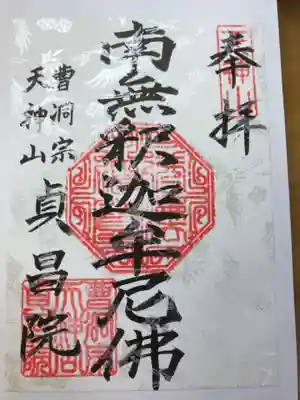 奉拝
南無釈迦牟尼佛
曹洞宗
天神山
貞昌院